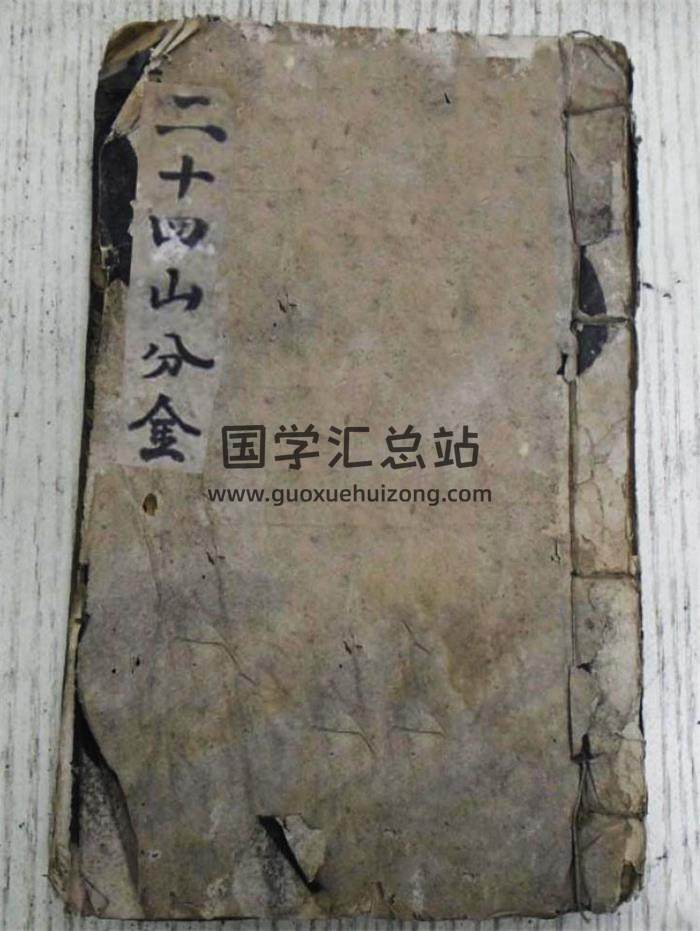 二十四山分金
国学汇总站
www.guoxuehuizong.com